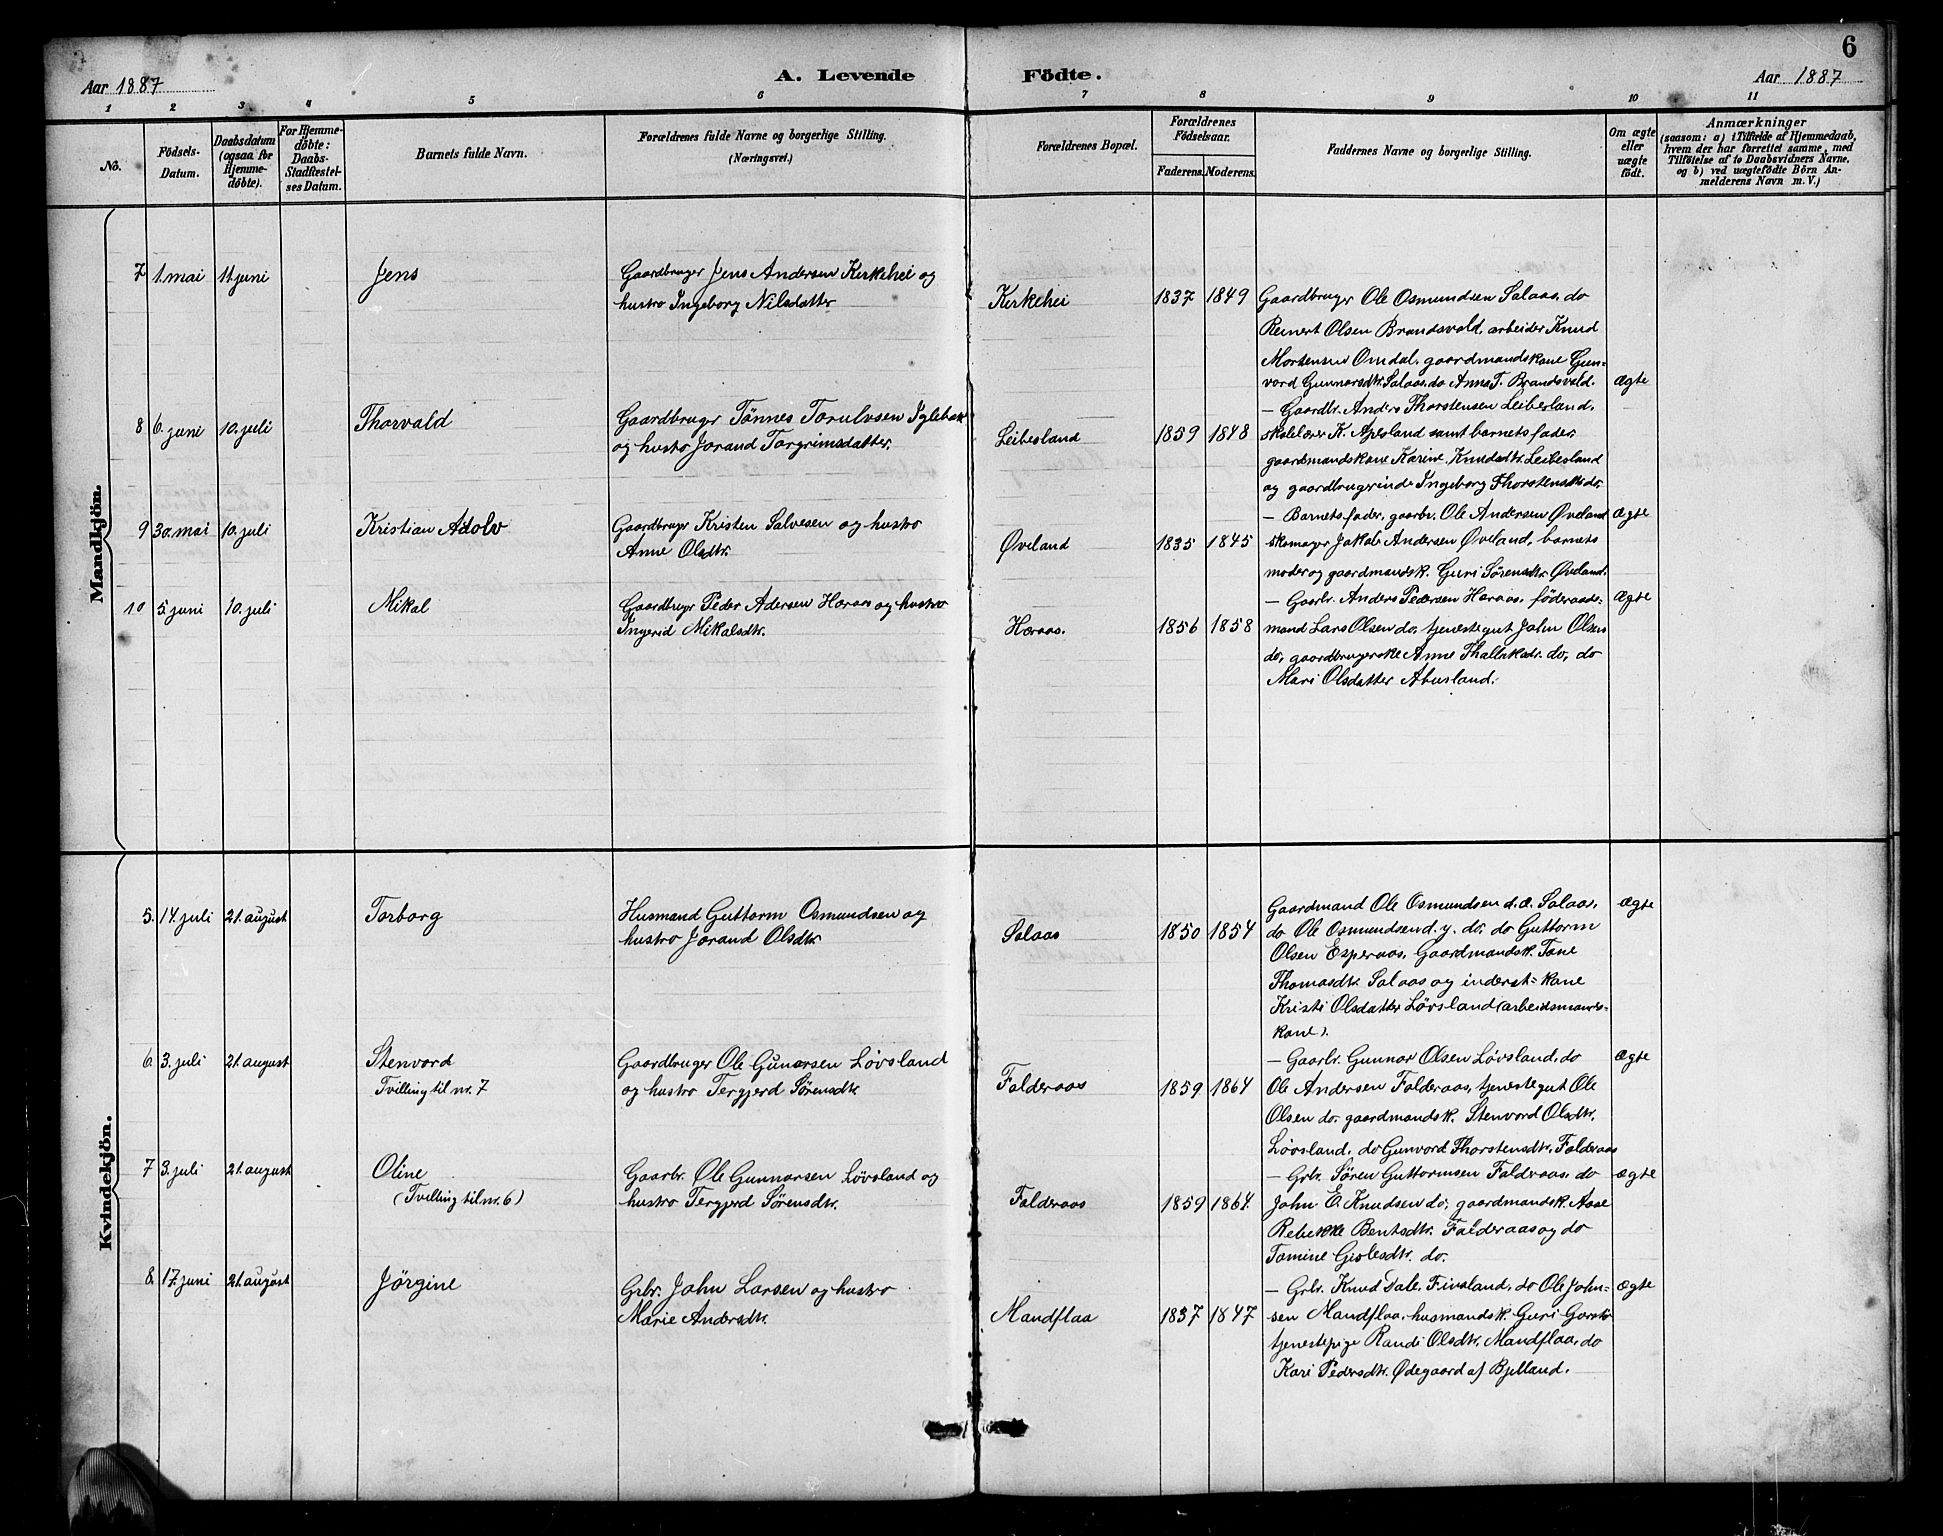 6
Aar 1887 A. Levende Födte. Aar 1887
1 2 3 4 5 6 7 8 9 10 11
No.
Födsels-
Datum.
Daabsdatum
(ogsaa for
Hjemme-
döbte).
For Hjemme-
döbte:
Daabs-
Stadfæstel-
ses Datum.
Barnets fulde Navn.
Forældrenes fulde Navne og borgerlige Stilling.
(Næringsvei.)
Forældrenes Bopæl.
Forældrenes
Födselsaar.
Faderens. Moderens.
Faddernes Navne og borgerlige Stilling.
Om ægte
eller
uægte
födt.
Anmærkninger
(saasom: a) i Tilfælde af Hjemmedaab,
hvem der har forrettet samme, med
Tilföielse af to Daabsvidners Navne,
og b) ved uægtefödte Börn An-
melderens Navn m. V.)
Mandkjön.
7 1. mai 11. juni Jens
Gaardbruger Jens Andersen Kirkehei og
hustro Ingeborg Nilsdatter
Kirkehei 1837 1849
Gaardbruger Ole Osmundsen Salaas, do
Reinert Olsen Brandsvold, arbeider Knud
Mortensen Omdal, gaardmandskone Gun-
vord Gunnarsdtr. Salaas, do Anna T. Brandsvold.
ægte
8 6. juni 10. juli Thorvald
Gaardbruger Tönnes Torulvsen Iglebæk
og hustro Jorand Torgrimsdatter.
Leibesland 1859 1848
– Gaardbr. Anders Thorstensen Leibesland,
skolelærer K. Apesland samt barnets fader,
gaardmandskone Karine Knudsdtr. Leibesland
og gaardbrugerinde Ingeborg Thorstensdtr. do.
ægte
9 30. mai 10. juli Kristian Adolv
Gaardbruger Kristen Salvesen og hustro
Anne Olsdtr.
Øveland 1835 1845
– Barnets fader, gaarbr. Ole Andersen Øveland
skomager Jakob Andersen Øveland, barnets
moder og gaardmandsk. Guri Sörensdtr. Øveland.
ægte
10 5. juni 10. juli Mikal
Gaardbrugr Peder Adersen Høraas og hustro
Ingerid Mikalsdtr.
Høraas. 1856 1858
– Gaarbr. Anders Pedersen Høraas, föderaads-
mand Lars Olsen do, tjenestegut John Olsen
do, gaardbrugerske Anne do, do
Mari Olsdatter Abusland.
Kvindekjön.
5. 14. juli 21. august Torborg
Husmand Guttorm Osmundsen og
hustro Jorand Olsdtr.
Salaas 1850 1854
Gaardmand Ole Osmundsen d. æ. Salaas,
do Ole Osmundsen d. y. do, do Guttorm
Olsen Esperaas, Gaardmandsk. Tone
Thomasdtr. Salaas og inderst-kone
Kristi Olsdatter Lövsland (arbeidsmands-
kone).
ægte
6. 3. juli 21. august Stenvord
Tvilling til nr. 7
Gaardbruger Ole Gunarsen Lövsland
og hustro Tergjerd Sörensdtr.
Falderaas 1859 1864
– Gaarbr. Gunnar Olsen Lövsland, do
Ole Andersen Falderaas, tjenestegut Ole
Olsen do, gaardmandsk. Stenvord Olsdtr.
Lövsland, do Gunvord Thorstensdtr. Falderaas
ægte
7 3. juli 21. august Oline
(Tvilling til nr. 6)
Gaarbr. Ole Gunnarsen Lövsland og
hustro Tergjerd Sörensdtr.
Falderaas 1859 1864.
– Grbr. Sören Guttormsen Faldraas, do
John E. Knudsen do, gaardmandsk. Aase
Rebekke Bentsdtr. Falderaas og do
Tomine Gislesdtr. do.
ægte
8. 17. juni 21. august Jörgine
Grbr. John Larsen og hustro
Marie Andersdtr.
Mandflaa 1837 1847
– Grbr. Knud Dale, Finsland, do Ole John-
sen Mandflaa, husmandsk. Guri
tjenestepige Randi Olsdtr. Mandflaa, do
Kari Pedersdtr. Ødegaard af Bjelland.
ægte